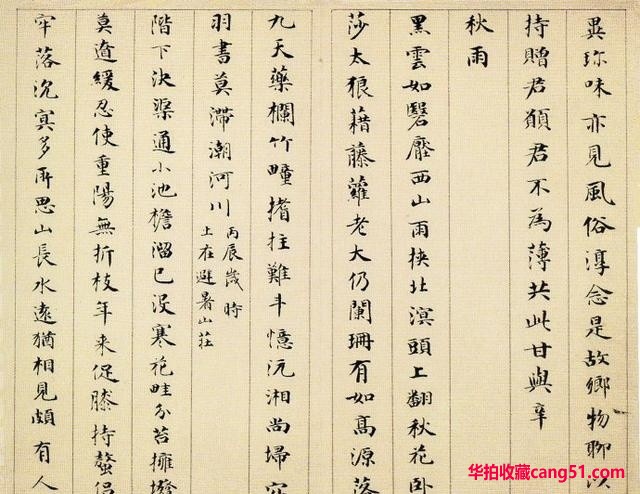 異珍味亦見風俗淳念是故鄉物聊以
持贈君願君不為薄共此甘與辛
秋雨
黑雲如翳壓西山雨挾北溟頭上翻秋花卧
莎太狼藉藤蘿老大仍闌珊有如高源落
九天藥欄竹疃搘拄難斗憶沅湘尚埽
羽書莫滯潮河川丙辰歲時
上在避暑山莊
階下決渠通小池檐溜已没寒花畦分苔擁
莫遣緩忍使重陽無折枝年来促膝持螯
牢落沉冥多所思山長水遠猶相見頗有人
华拍收藏cang51.com